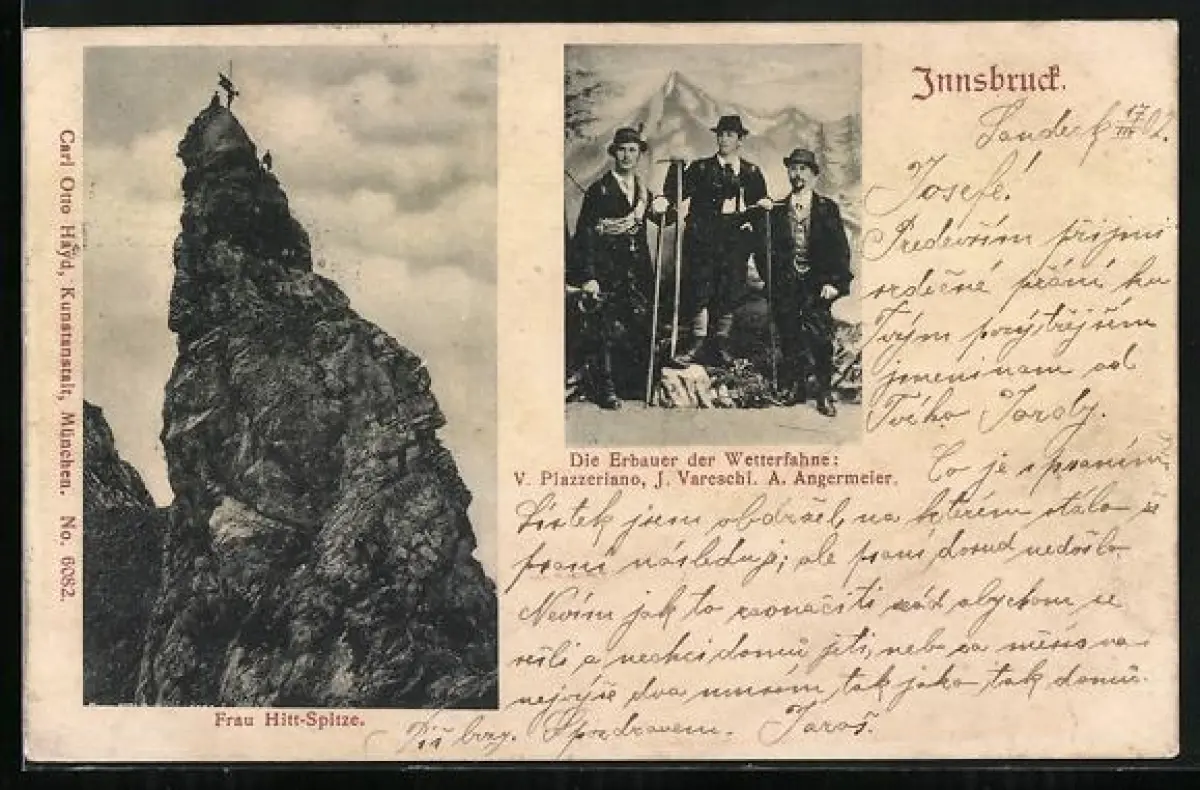 Carl Otto Hayd, Kunstanstalt, München. No. 6082.
Frau Hitt-Spitze.
Die Erbauer der Wetterfahne:
V. Plazzeriano, J. Vareschi. A. Angermeier.
Innsbruck.
Landeck 17/III 02.
Josefe!
Především přijmi
srdečné přání ku
Tvým pozýtřejším
jmeninám od
Tvého Jardy.
Co je s praním?
Lístek jsem obdržel, na kterém stálo že
praní následuje; ale praní dosud nedošlo
Nevím jak to
rád abychom se
a nechci domů jeti, neb za
nejvýše dva musím tak jako tak domů.
Piš brzy. S pozdravem. Jaroš.